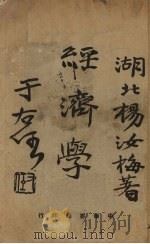 湖北楊汝梅著
經濟學
于右任